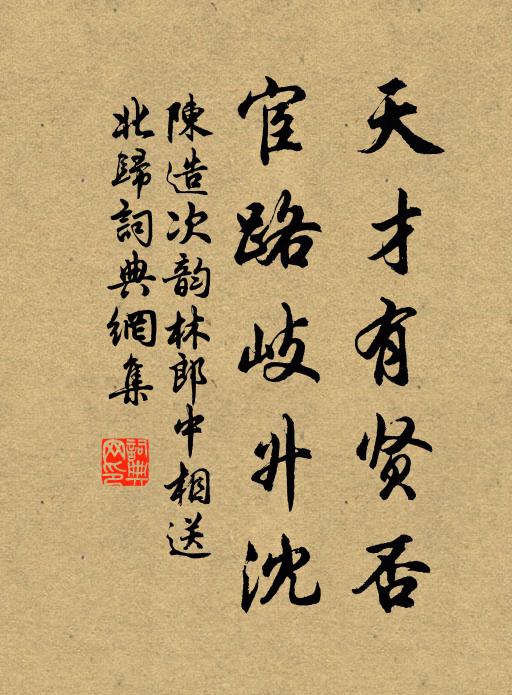 天才有贤否
宦路歧升沈
陳造次韵林郎中相送
北歸詞典網集
詞典网印